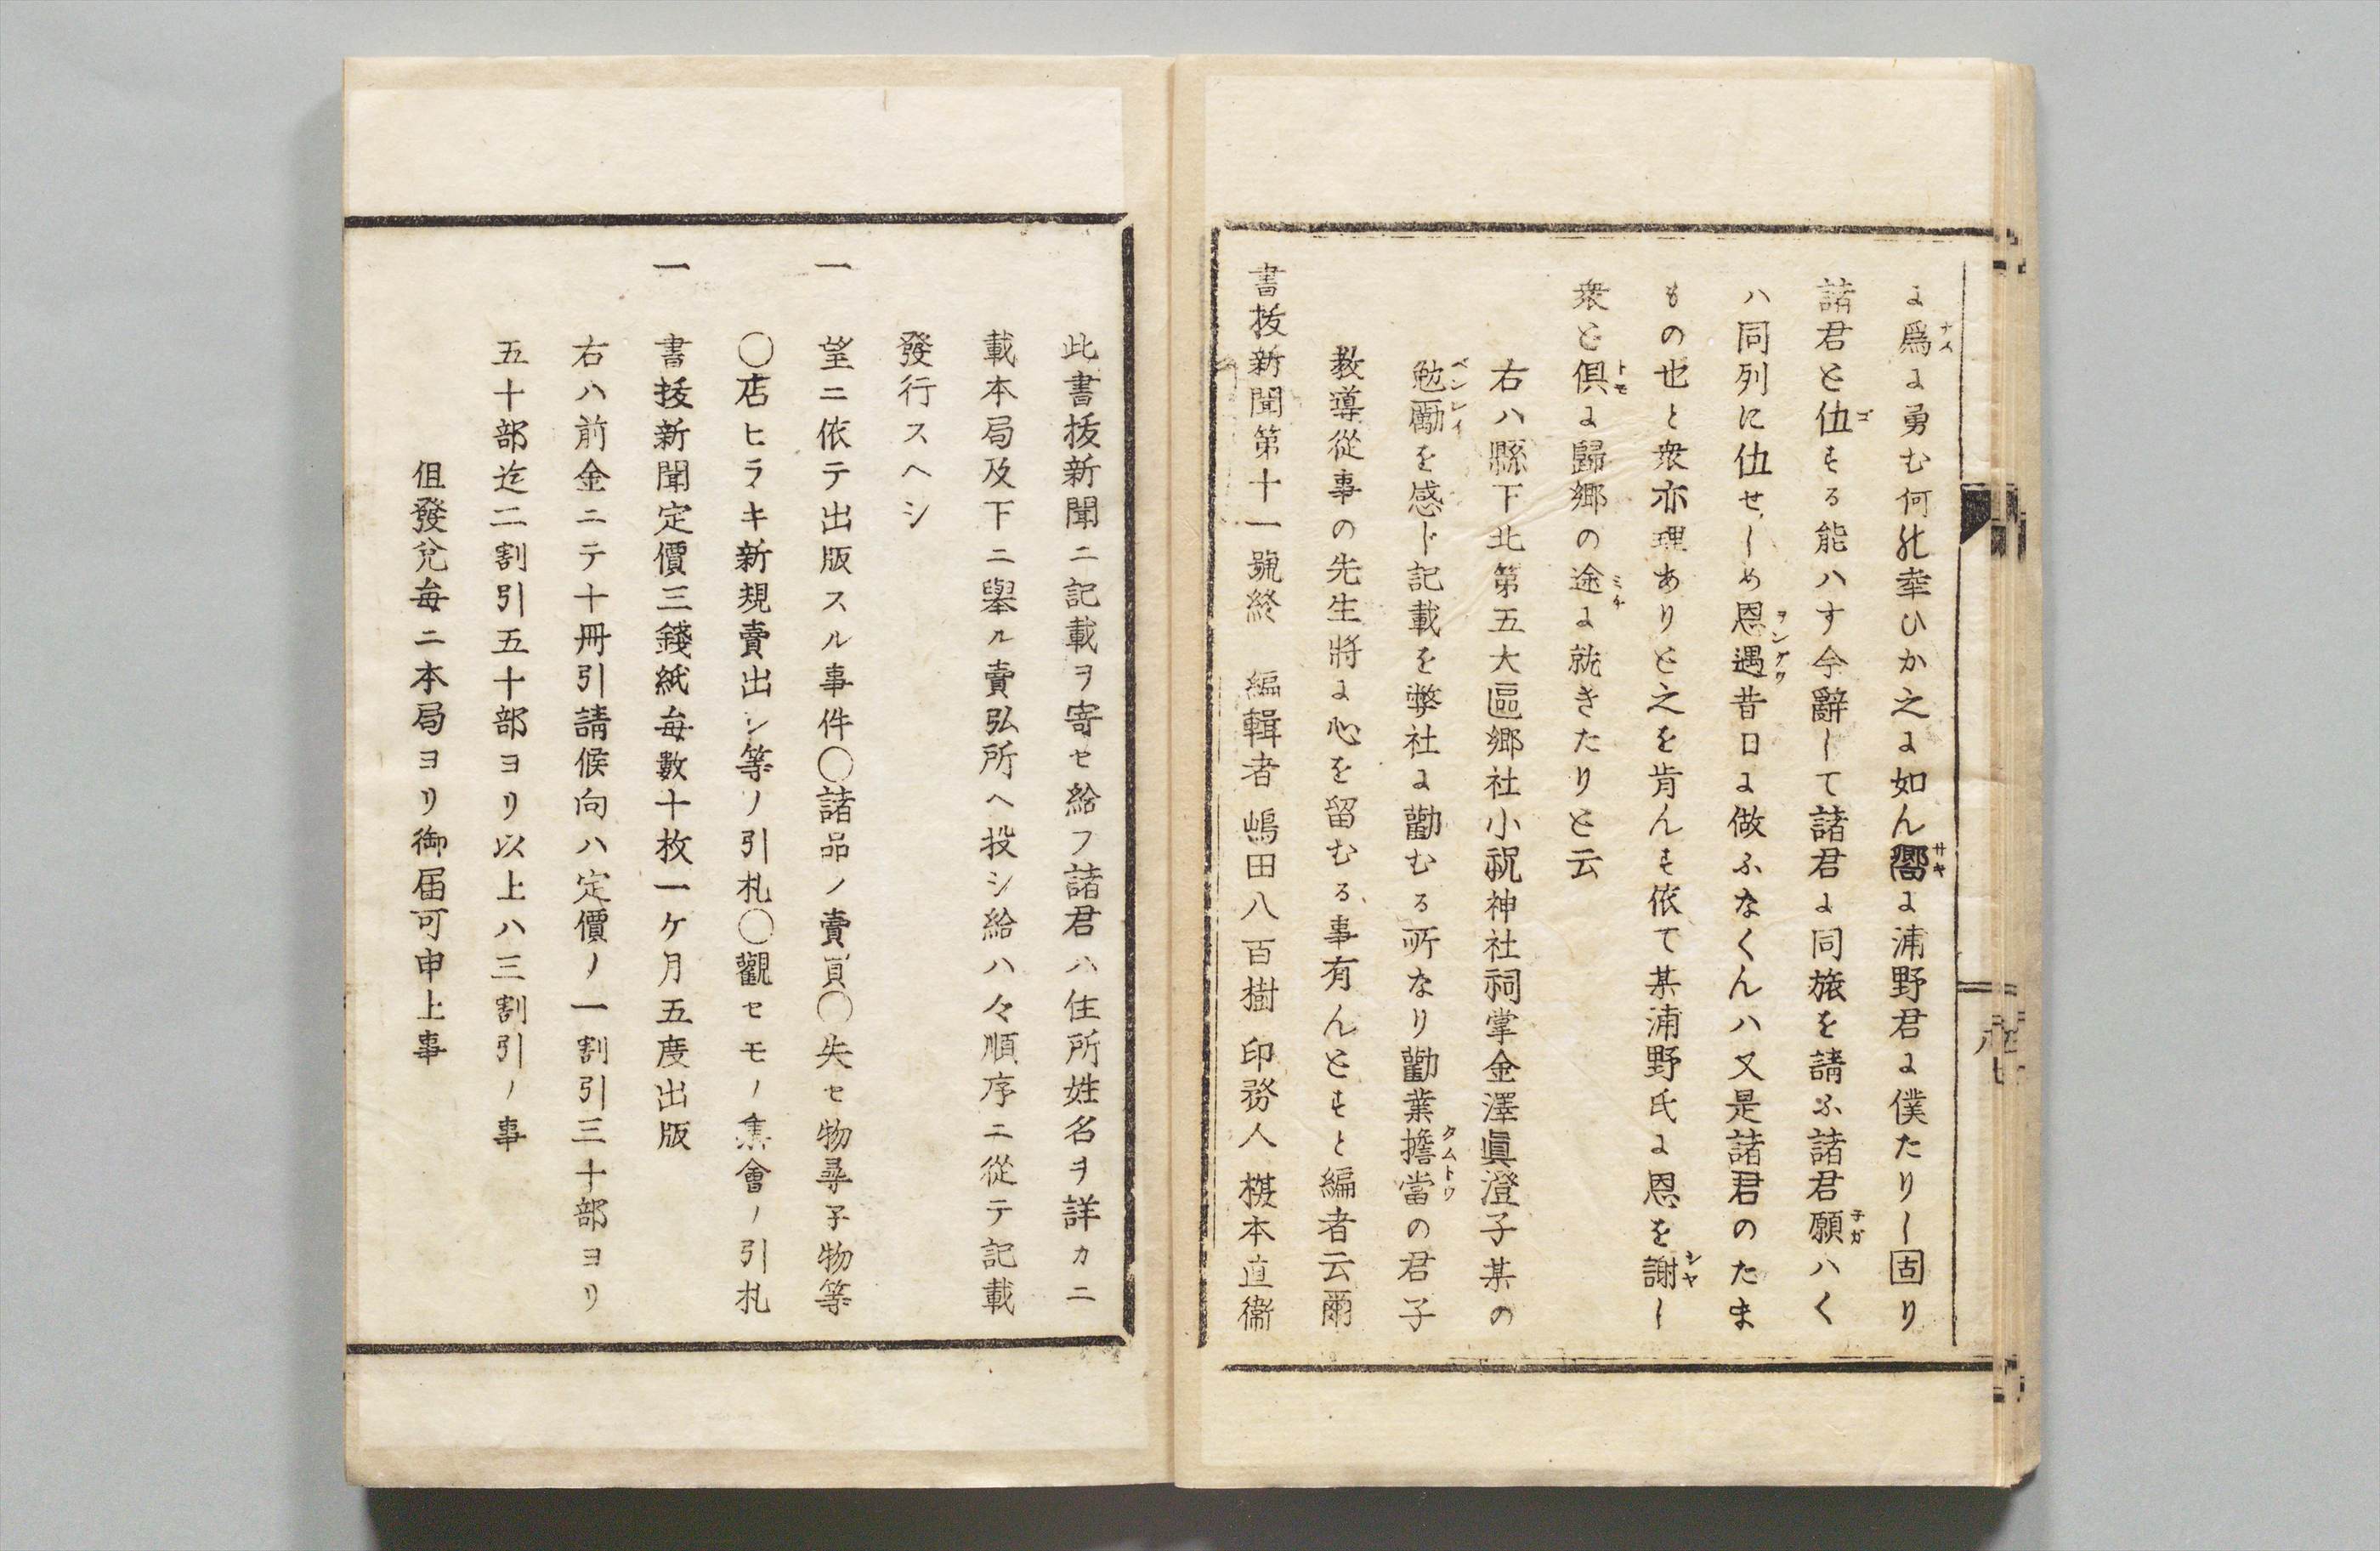 に爲に勇む何の幸ひか之に如ん嚮に浦野君に僕たりし固り
諸君と伍する能ハす今辭して諸君に同旅を請ふ諸君願ハく
ハ同列に伍せしめ恩遇昔日に倣ふなくんハ又是諸君のたま
もの也と衆亦理ありと之を肯んす依て某浦野氏に恩を謝し
衆と倶に歸郷の途に就きたりと云
右ハ縣下北第五大區郷社小祝神社祠掌金澤眞澄子某の
勉勵を感じ記載を弊社に勸むる所なり勸業擔當の君子
教導從事の先生將に心を留むる事有んとすと編者云爾
書抜新聞第十一號終 編輯者 嶋田八百樹 印務人 榠本直衞
此書抜新聞ニ記載ヲ寄セ給フ諸君ハ住所姓名ヲ詳カニ
載本局及下ニ擧ル賣弘所ヘ投シ給ハヽ順序ニ從テ記載
發行スヘシ
一 望ニ依テ出版スル事件〇諸品ノ賣買〇失セ物尋子物等
〇店ヒラキ新規賣出シ等ノ引札〇觀セモノ集會ノ引札
一 書抜新聞定價三錢紙毎數十枚一ケ月五度出版
右ハ前金ニテ十冊引請候向ハ定價ノ一割引三十部ヨリ
五十部迄二割引五十部ヨリ以上ハ三割引ノ事
但發兌毎ニ本局ヨリ御届可申上事